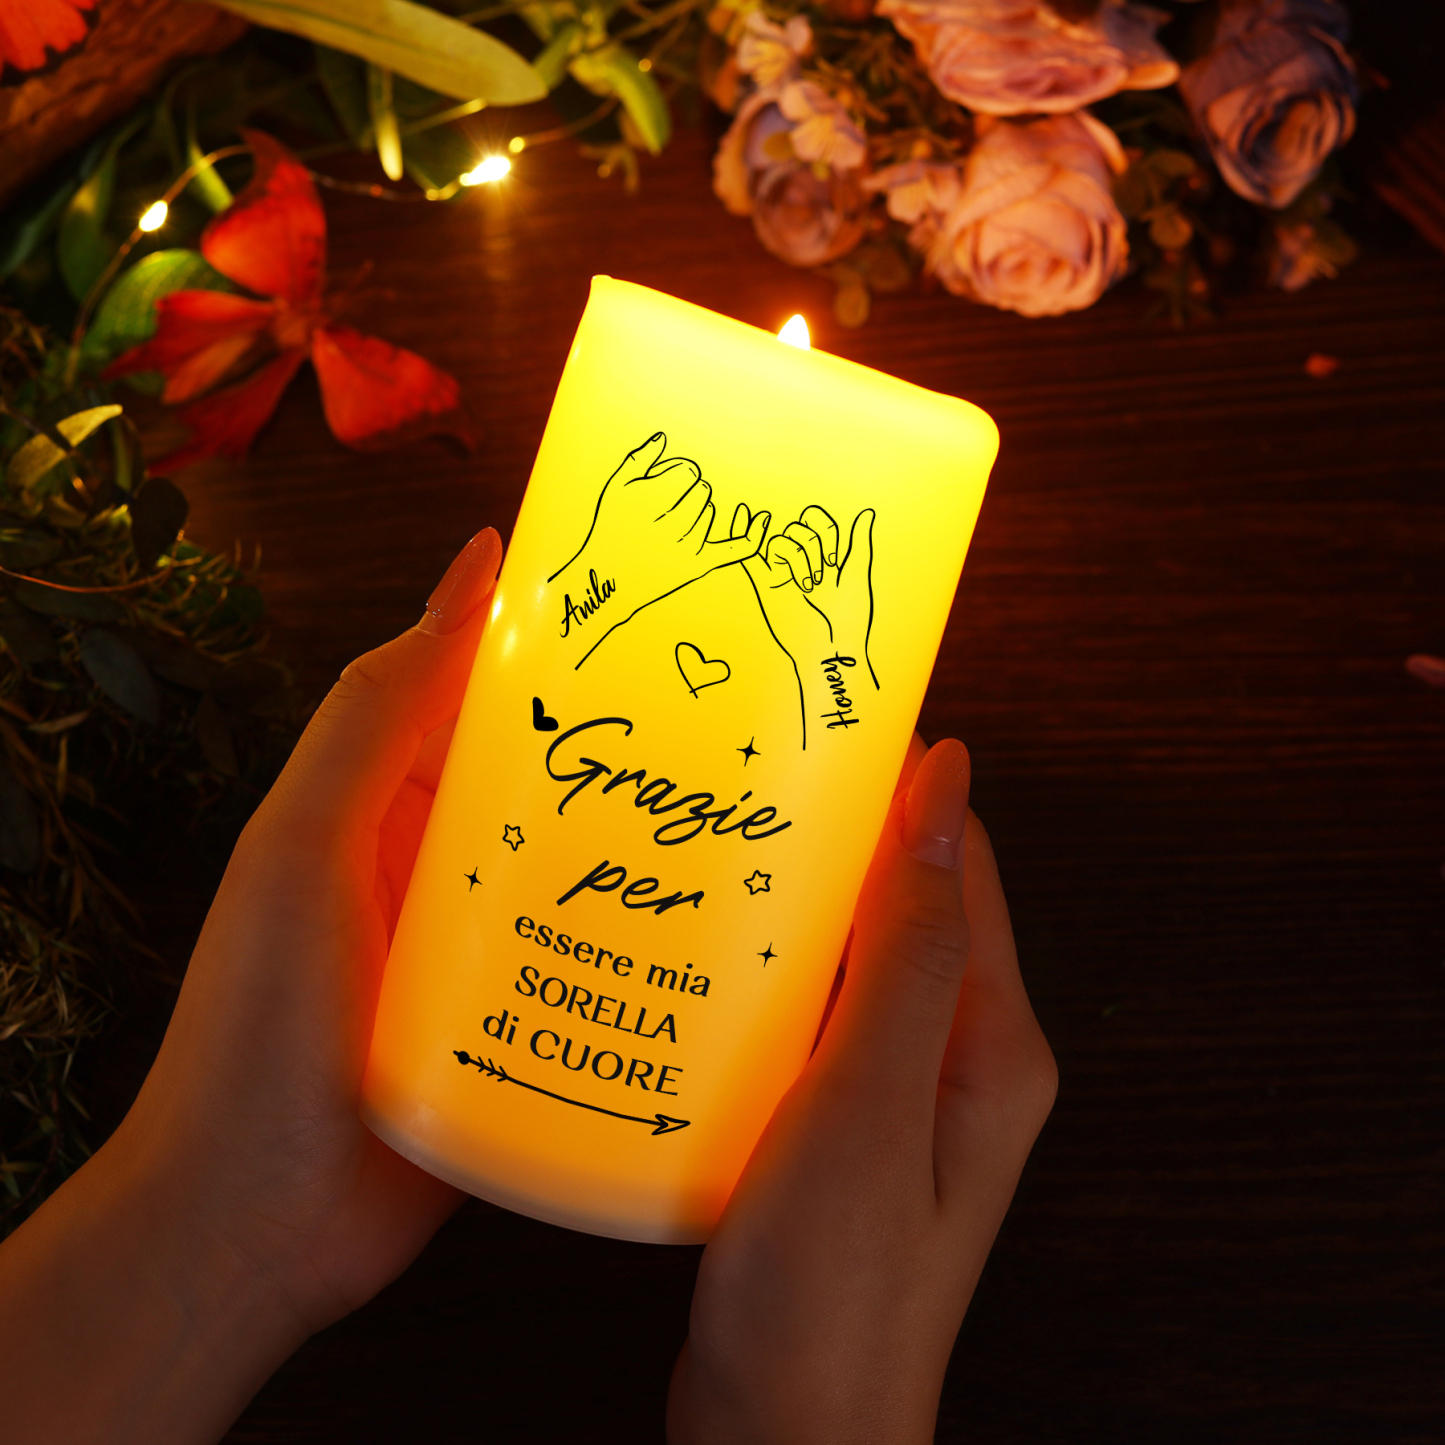 Anila
Honey
Grazie
per
essere mia
SORELLA
di CUORE